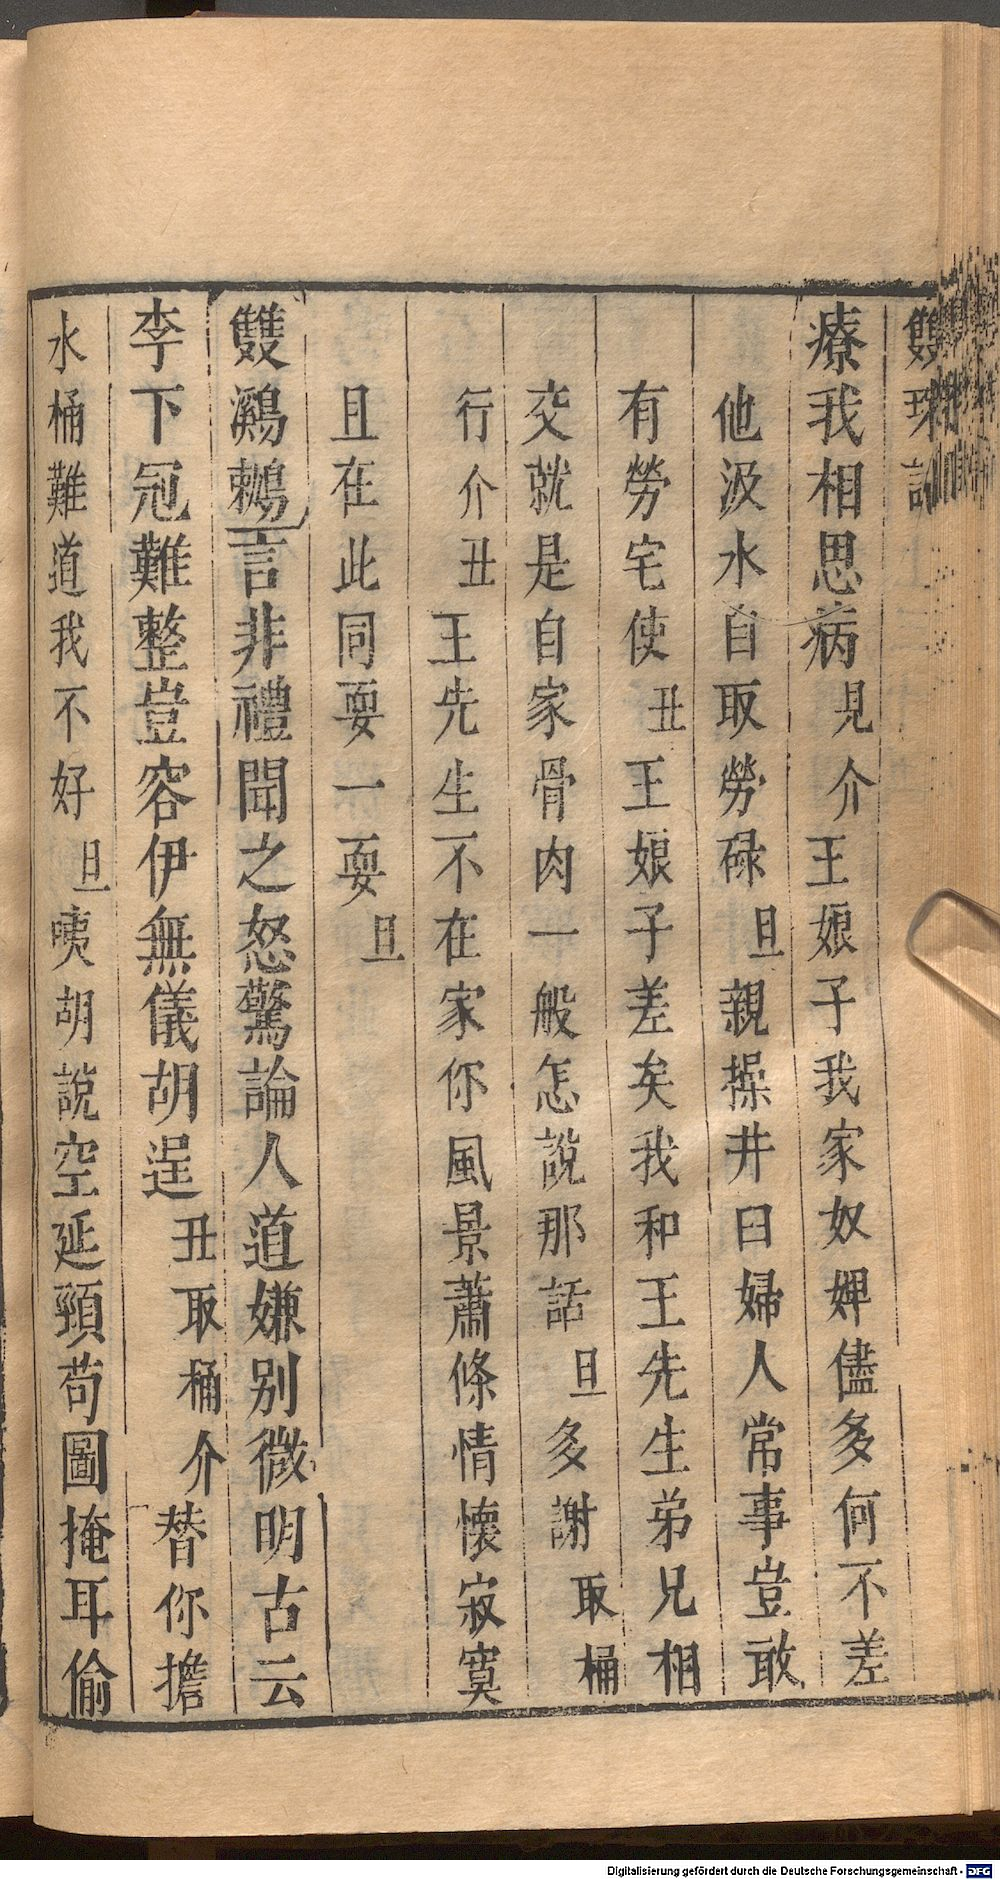 雙珠記
療我相思病見介王娘子我家奴婢儘多何不差
他汲水自取勞碌旦親操井臼婦人常事豈敢
有勞宅使丑王娘子差矣我和王先生弟兄相
交就是自家骨肉一般怎說那話旦多謝取桶
行介丑王先生不在家你風景蕭條情懷寂寞
且在此同耍一耍旦
雙鸂鶒言非禮聞之怒驚論人道嫌別微明古云
李下冠難整豈容伊無儀胡逞丑取桶介替你擔
水桶難道我不好旦咦胡說空延頸苟圖掩耳偷
Digitalisierung gefördert durch die Deutsche Forschungsgemeinschaft - DFG